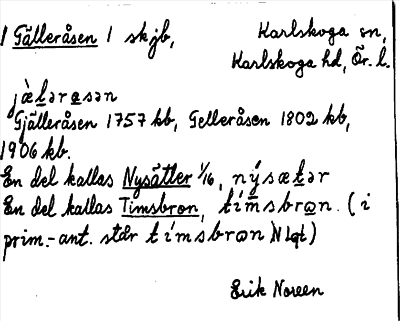 1 Gälleråsen 1 skjb, Karlskoga sn,
Karlskoga hd, Ör. l.
jæ̀lərəsən
Gjälleråsen 1757 kb, Gelleråsen 1802 kb,
1906 kb.
En del kallas Nysätter 1/16, nýsætər
En del kallas Timsbron, tímsbrɷn. (i
prim.-ant. står tímsbrɷn
Erik Noreen